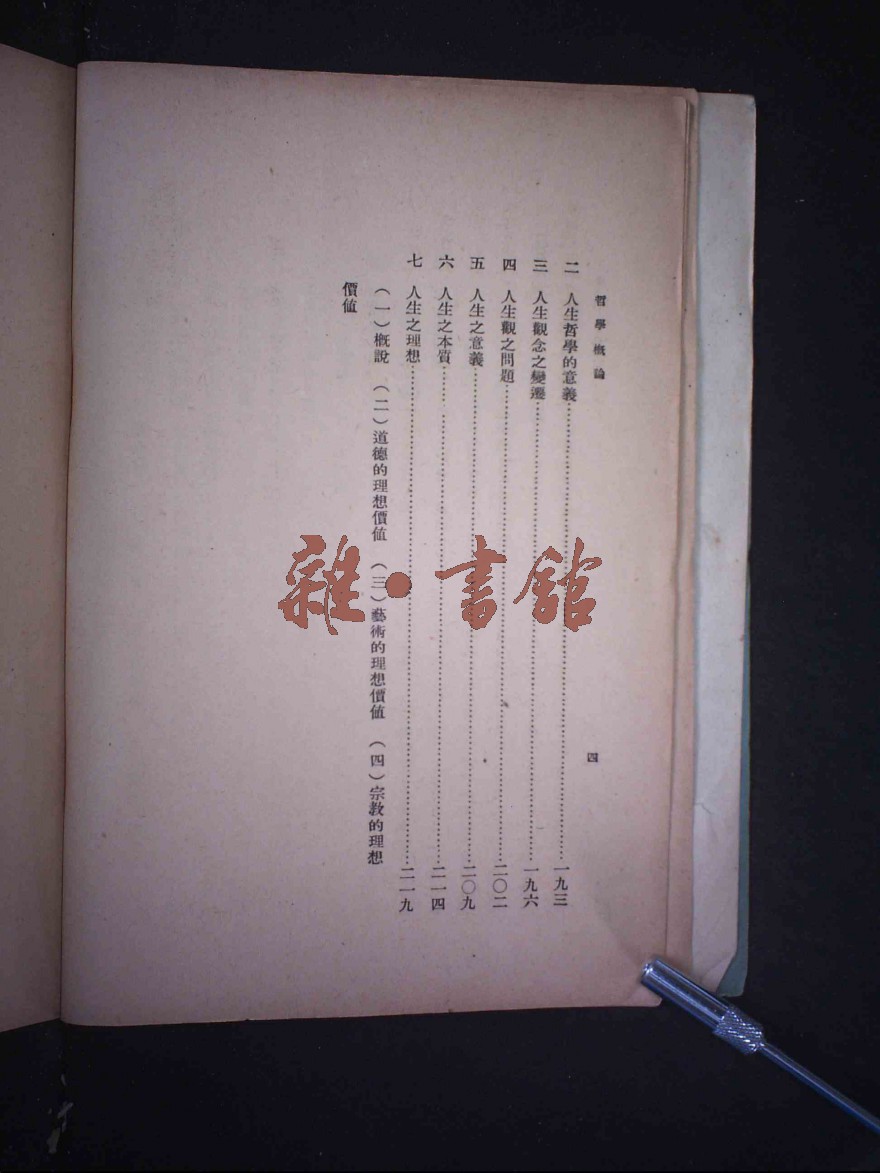 哲學概論
四
二 人生哲學的意義……一九三
三 人生觀念之變遷……一九六
四 人生觀之問題……二〇二
五 人生之意義……二〇九
六 人生之本質……二一四
七 人生之理想……二一九
(一)概說 (二)道德的理想價值 (三)藝術的理想價值 (四)宗教的理想
價值
雜·書館